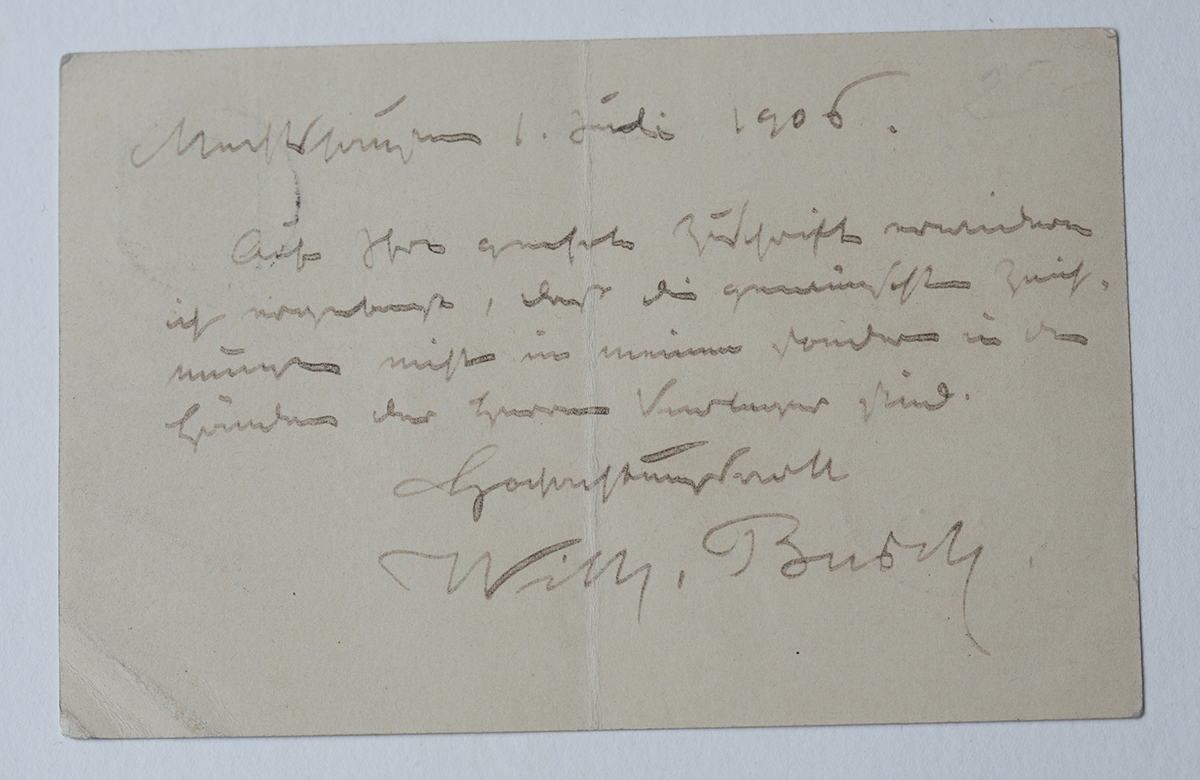 Mechtshausen 1. Juli 1906.
Auf Ihre geehrte Zuschrift erwidere
ich ergebenst, daß die gewünschten Zeich-
nungen nicht in meinen sondern in den
Händen der Herren Verleger sind.
Hochachtungsvoll
Wilh. Busch.